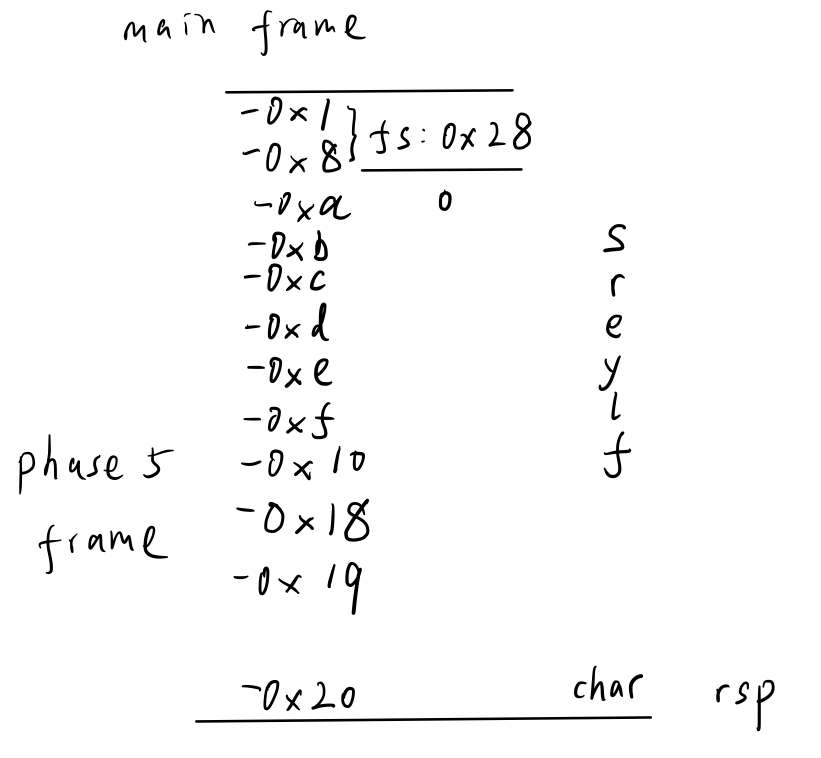 main frame
-0x1
fs: 0x28
-0x8
-0xa 0
-0xb s
-0xc r
-0xd e
-0xe y
-0xf l
phase 5 -0x10 f
-0x18
frame
-0x19
-0x20 char rsp